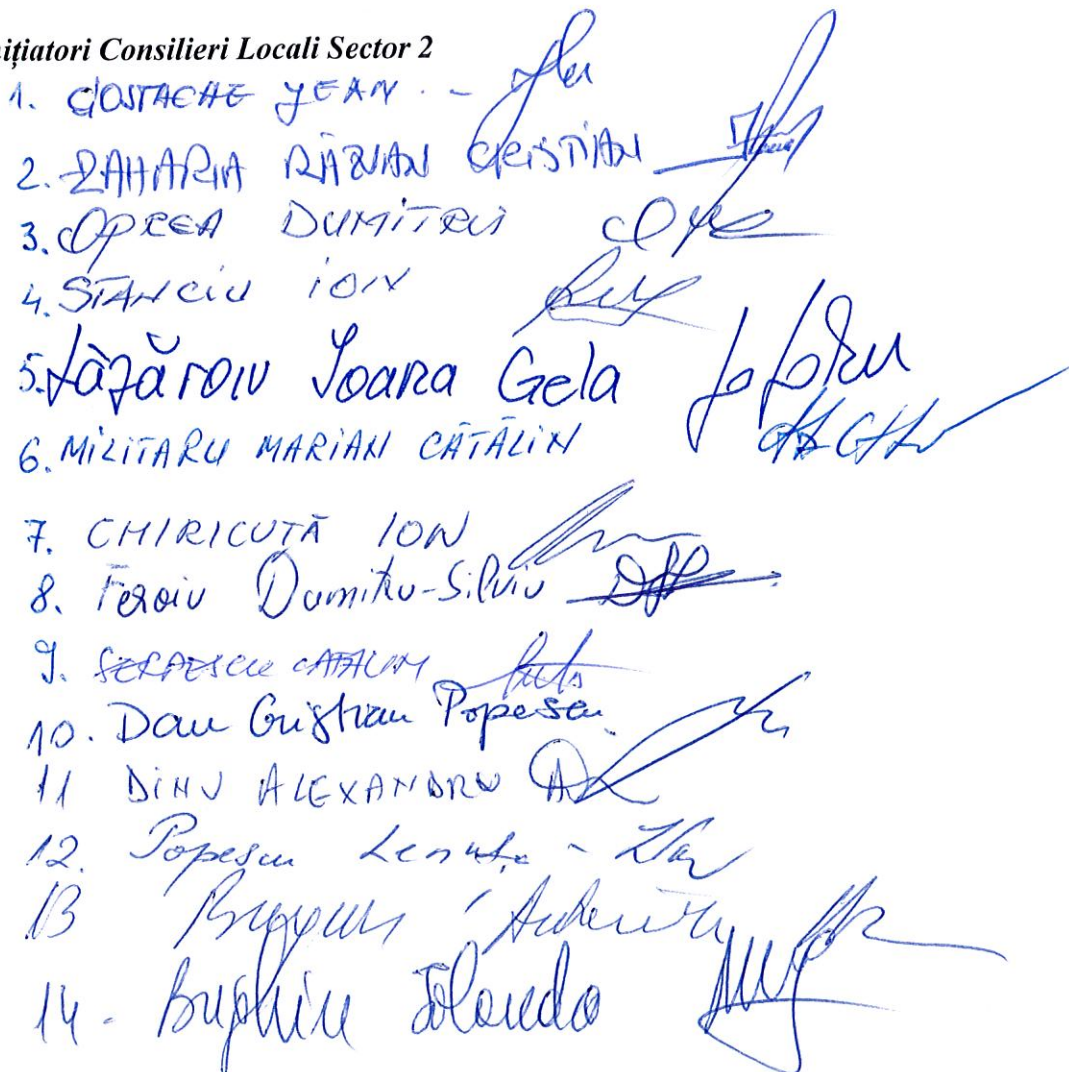 nițiatori Consilieri Locali Sector 2
1. COSTACHE JEAN. -
2. ZAHARIA RĂZVAN CRISTIAN
3. OPREA DUMITRU
4. STANCIU ION
5. Lăzăroiu Ioana Gela
6. MILITARU MARIAN CĂTĂLIN
7. CHIRICUȚĂ ION
8. Feroiu Dumitru-Silviu
9. CĂTĂLIN
10. Dan Cristian Popescu
11 DINU ALEXANDRU
12. Popescu Lenuța -
13
14 - Iolanda